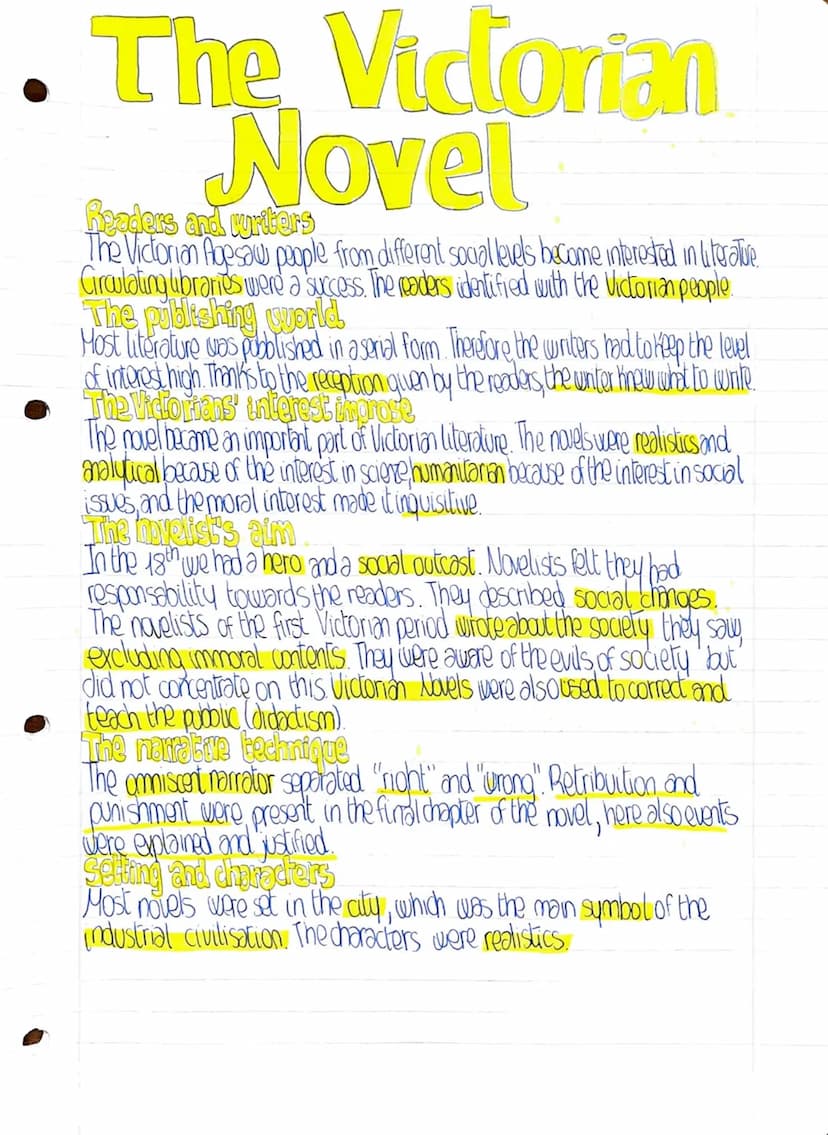 The Victorian
Novel
Readers and writers
The Victorian Age saw people from different social levels become interested in literature.
Circulating libraries were a success. The readers identified with the Victorian people.
The publishing world
Most literature was pubblished in a serial form. Therefore, the writers had to keep the level
of interest high. Thanks to the reception given by the readers, the writer knew what to write.
The Victorians' interest in prose
The novel became an important part of Victorian literature. The novels were realistics and
analytical because of the interest in science, humanitarian because of the interest in social
issues, and the moral interest made it inquisitive.
The novelist's aim
In the 18th we had a hero and a social outcast. Novelists felt they had
responsability towards the readers. They described social changes.
The novelists of the first Victorian period wrote about the society they saw,
excluding immoral contents. They were aware of the evils of society but
did not concentrate on this. Victorian Novels were also used to correct and
teach the pubblic (didactism).
The narrative technique
The omniscent narrator separated "right" and "wrong". Retribuition and
punishment were present in the final chapter of the novel, here also events
were explained and justified.
Setting and characters
Most novels were set in the city, which was the main symbol of the
industrial civilisation. The characters were realistics.